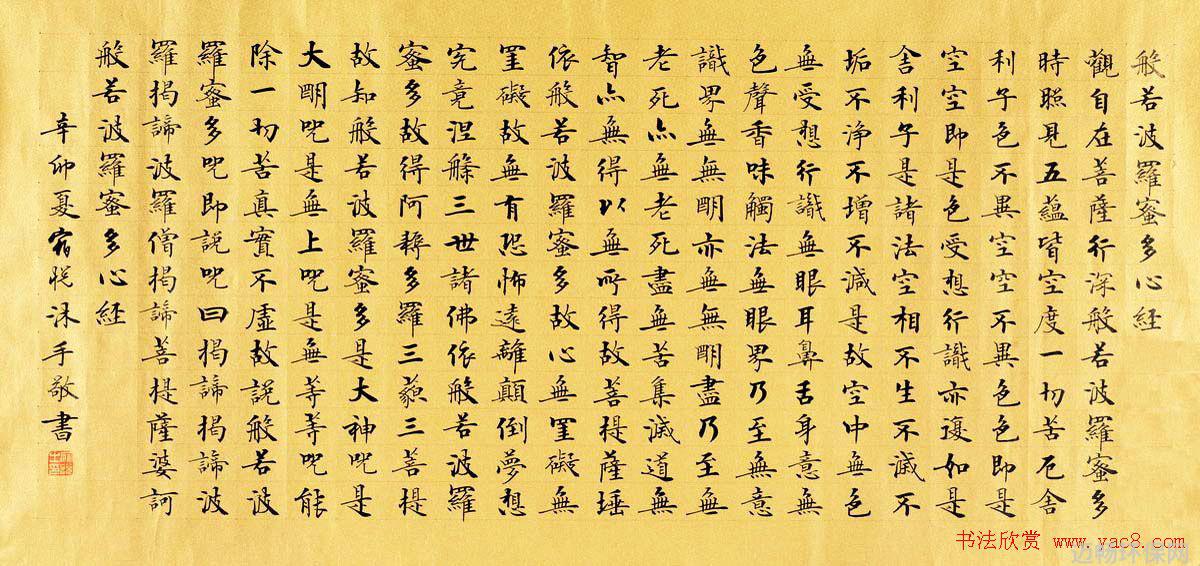 般若波羅蜜多心経
觀自在菩薩行深般若波羅蜜多
時照見五蘊皆空度一切苦厄舍
利子色不異空空不異色色即是
空空即是色受想行識亦復如是
舍利子是諸法空相不生不滅不
垢不淨不增不減是故空中無色
無受想行識無眼耳鼻舌身意無
色聲香味觸法無眼界乃至無意
識界無無明亦無無明盡乃至無
老死亦無老死盡無苦集滅道無
智亦無得以無所得故菩提薩埵
依般若波羅蜜多故心無罣礙無
罣礙故無有恐怖遠離顛倒夢想
究竟涅槃三世諸佛依般若波羅
蜜多故得阿耨多羅三藐三菩提
故知般若波羅蜜多是大神咒是
大明咒是無上咒是無等等咒能
除一切苦真實不虛故說般若波
羅蜜多咒即說咒曰揭諦揭諦波
羅揭諦波羅僧揭諦菩提薩婆訶
般若波羅蜜多心経
辛卯夏沐手敬書
书法欣赏 www.yac8.com
迈畅环保网